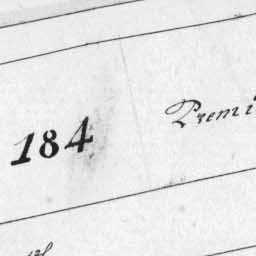 184 Premi